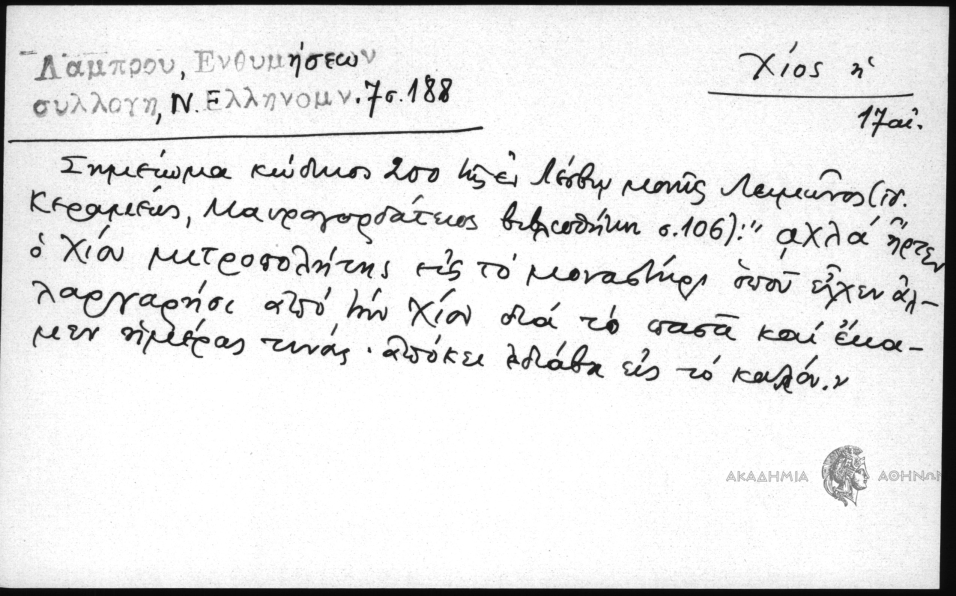 Λάμπρου, Ενθυμήσεων
συλλογη, Ν. Ελληνομν. 7 σ. 188
Χίος ἡ
17 αἰ.
Σημείωμα κώδικος 250 τῆς ἐν Λέσβῳ μονῆς Λειμῶνος (ἰδ.
Κεραμέως, Μαυρογορδάτειος βιβλιοθήκη σ. 106): "αχλα ἦρτεν
ὁ Χίου μετροπολήτης εἰς τὸ μοναστήρι ὁποῦ εἶχεν ἀλ-
λαργαρήσι ἀπὸ τὴν Χίου διὰ τὸ πασᾶ καὶ ἔκα-
μεν ἡμέρας τινάς. ἀπόκει ἐδιάβη εἰς τὸ καλόν.»
ΑΚΑΔΗΜΙΑ ΑΘΗΝΩΝ